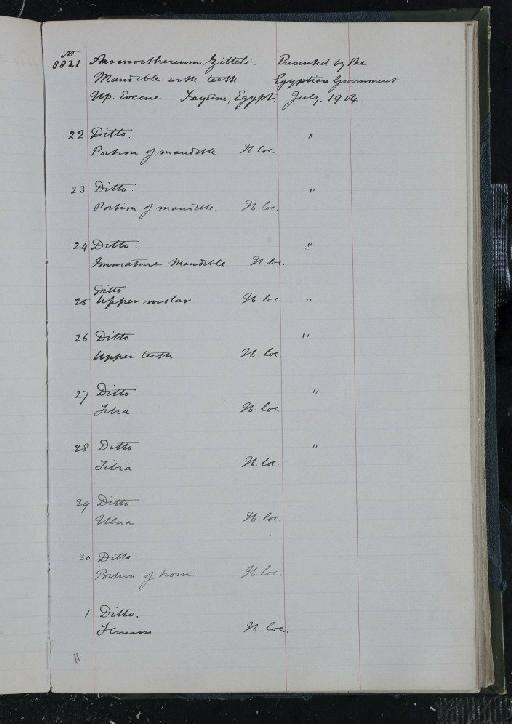 No
8821 Arsinoitherium Zitteli. Presented by the
Mandible with teeth Egyptian Government
Up. Eocene Fayûm, Egypt. July. 1904.
22 Ditto.
Portion of mandible H. loc. "
23 Ditto.
Portion of mandible. H. loc. "
24 Ditto
Immature Mandible H. loc. "
Ditto
25 Upper molar H. loc "
26 Ditto "
Upper teeth H. loc
27 Ditto "
Tibia H. loc
28 Ditto "
Tibia H. loc.
29 Ditto
Ulna H. loc.
30 Ditto
Portion of horn H. loc.
1 Ditto.
H. loc.